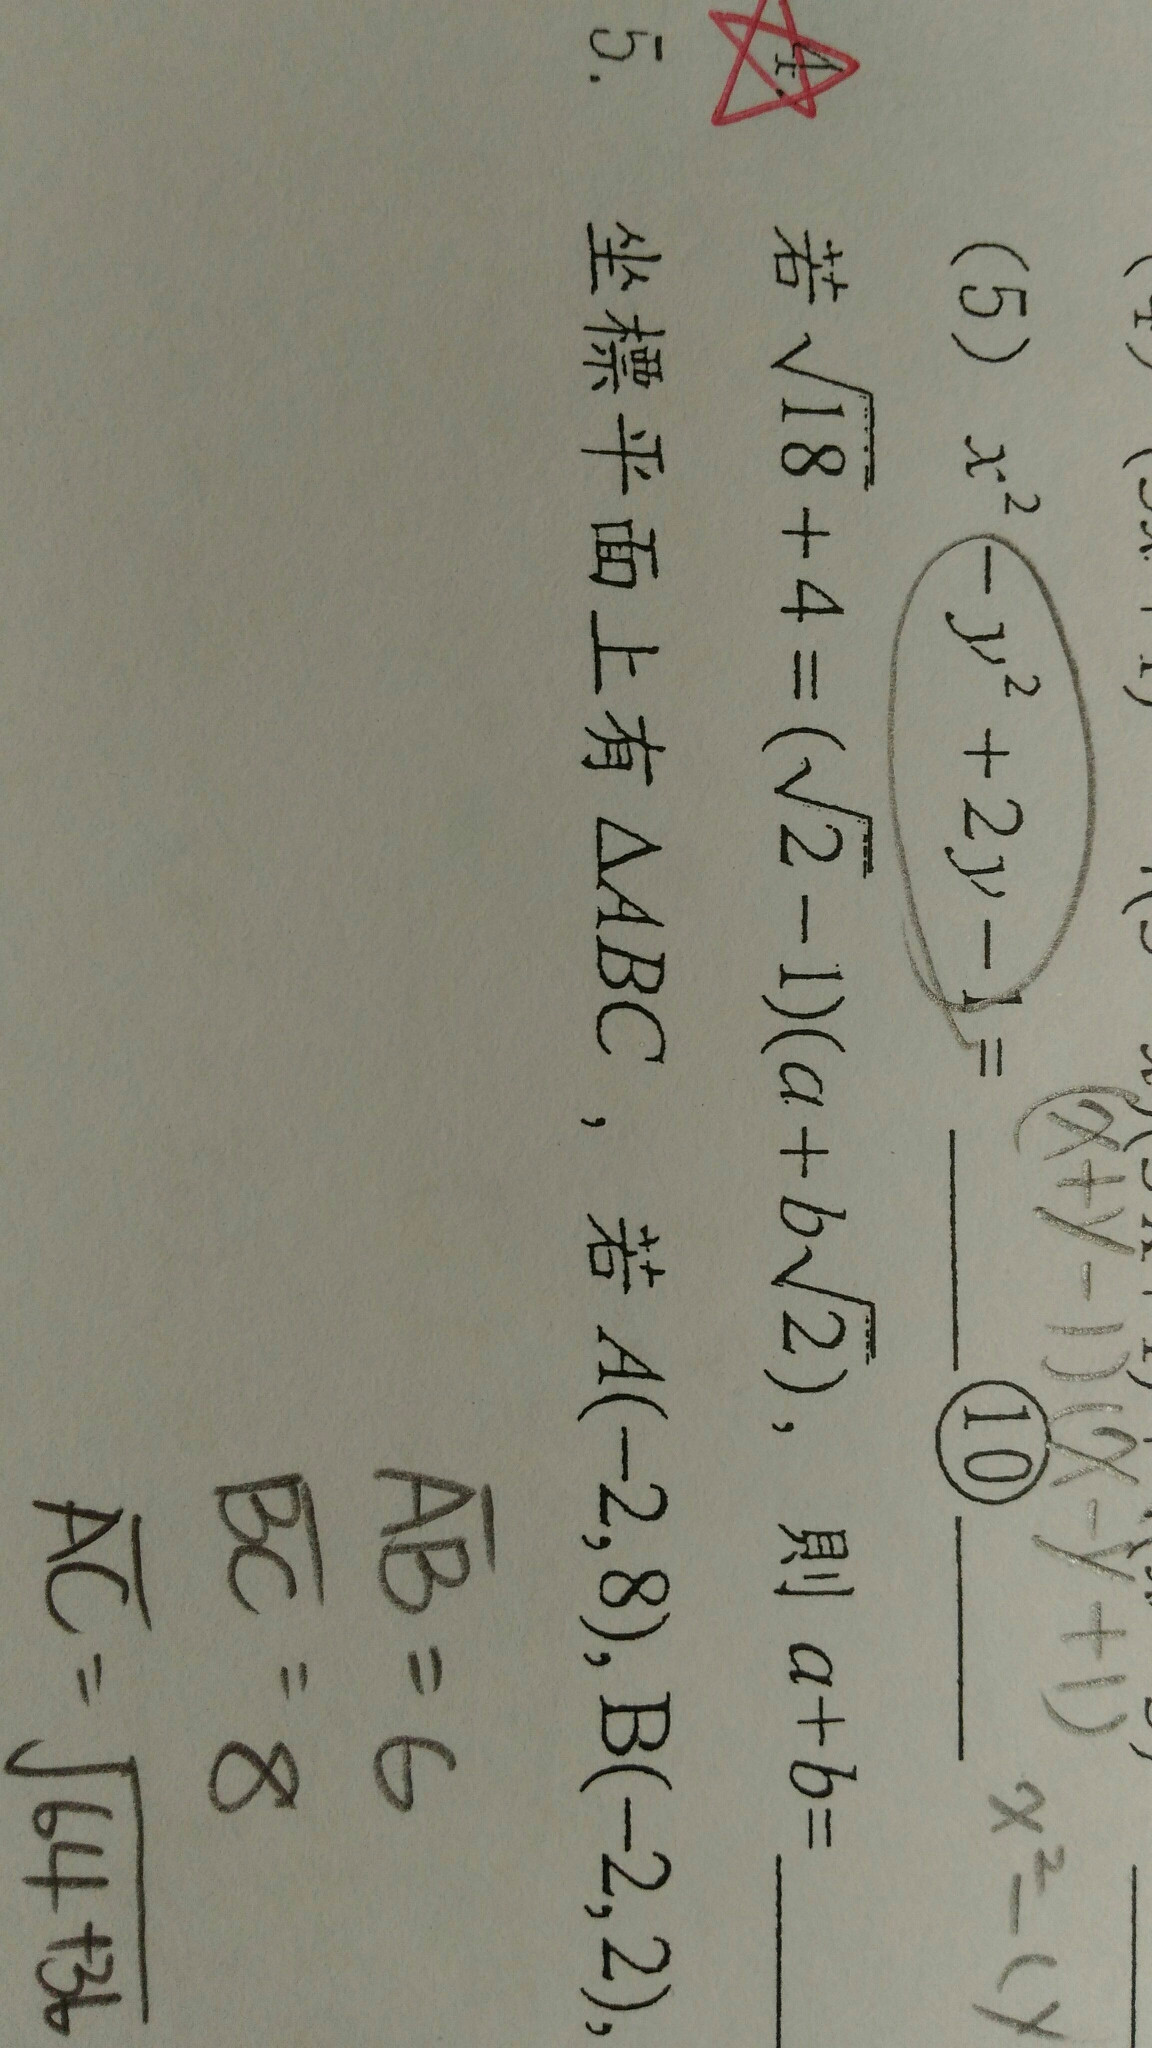 (5) x² - y² + 2y - 1 = ⑩
(x+y-1)(x-y+1)
x² - (y
4. 若 √18 + 4 = (√2 - 1)(a + b√2), 則 a + b =
5. 坐標平面上有 △ABC, 若 A(-2,8), B(-2,2),
AB = 6
BC = 8
AC = √64+36